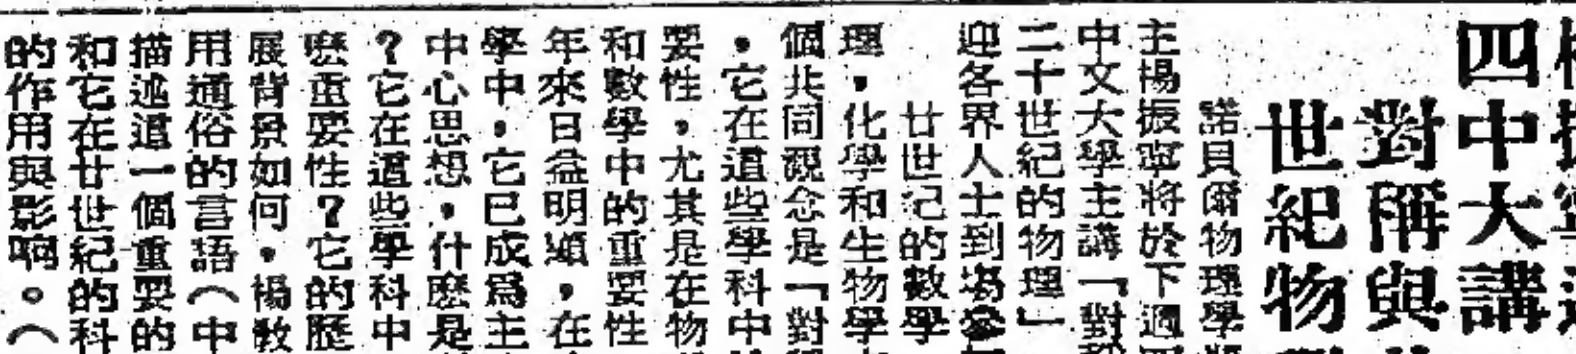 四中大講
對稱與
世紀物
諾貝爾物理學
主楊振寧將於下週
中文大學主講「對
二十世紀的物理」
迎各界人士到場參
廿世紀的數學
理，化學和生物學
個共同觀念是「對
，它在這些學科中
要性，尤其是在物
和數學中的重要性
年來日益明顯，在
學中，它已成為主
中心思想，什麼是
？它在這些學科中
麼重要性？它的歷
展背景如何，楊教
用通俗的言語（中
描述這一個重要的
和它在廿世紀的科
的作用與影响。（